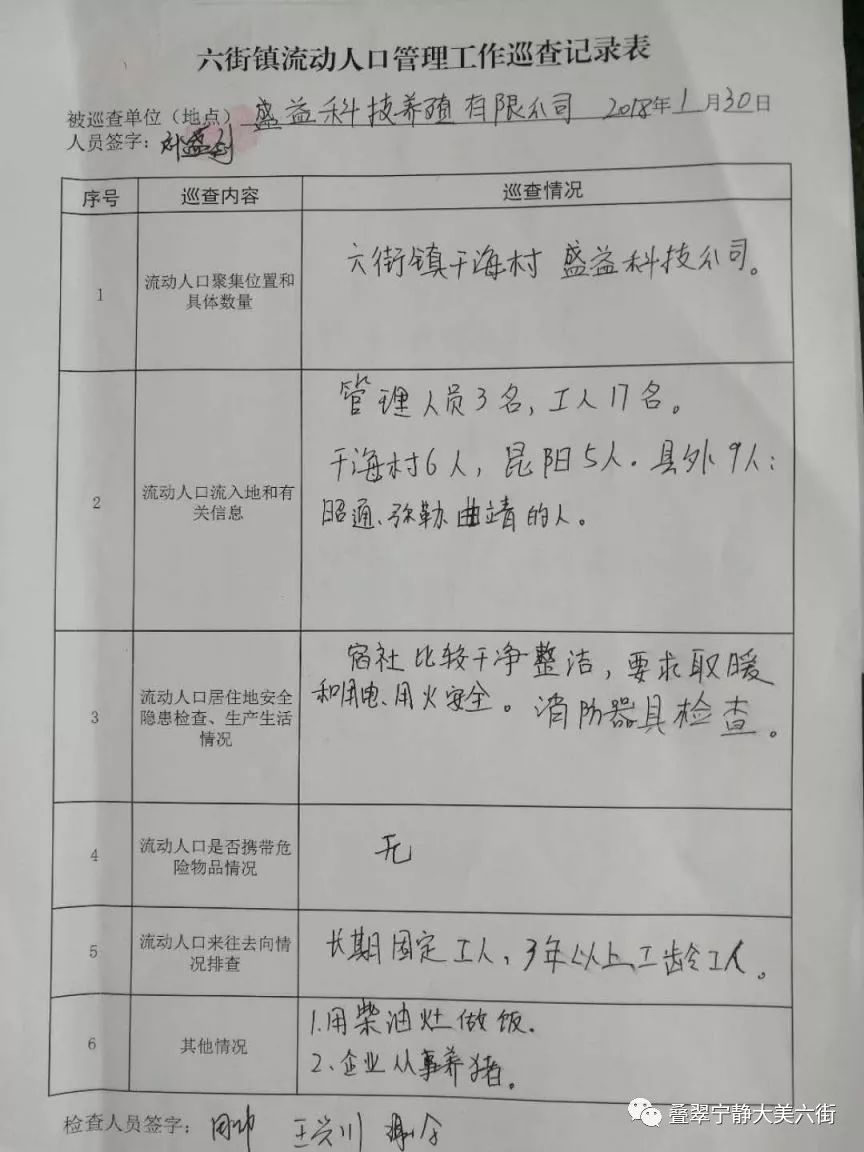 六街镇流动人口管理工作巡查记录表
被巡查单位（地点） 盛益科技养殖有限公司 2018年1月30日
人员签字：
序号 巡查内容 巡查情况
1 流动人口聚集位置和具体数量
六街镇干海村 盛益科技公司。
2 流动人口流入地和有关信息
管理人员3名，工人17名。
干海村6人，昆阳5人.县外9人：
昭通、弥勒曲靖的人。
3 流动人口居住地安全隐患检查、生产生活情况
宿社比较干净整洁，要求取暖
和用电、用火安全。消防器具检查。
4 流动人口是否携带危险物品情况
无
5 流动人口来往去向情况排查
长期固定工人，3年以上工龄工人。
6 其他情况
1.用柴油灶做饭.
2、企业从事养猪。
检查人员签字： 王兴川
叠翠宁静大美六街